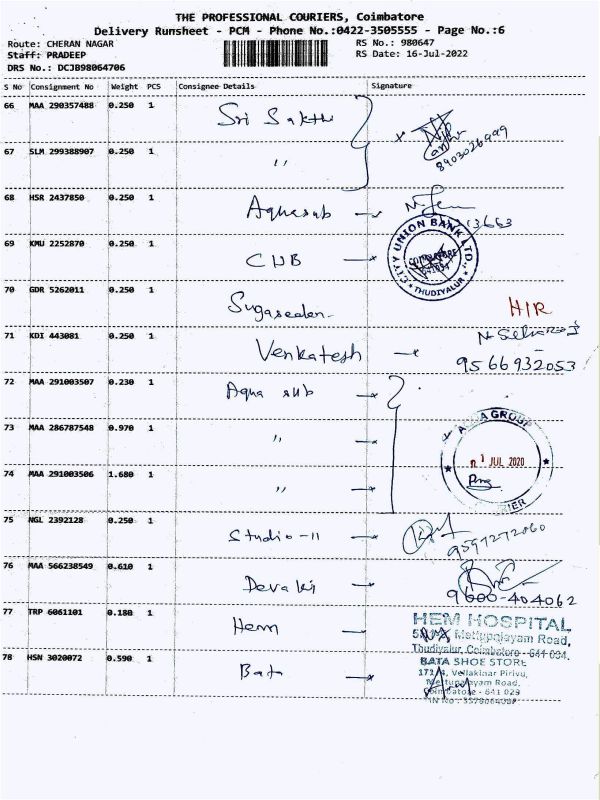 THE PROFESSIONAL COURIERS, Coimbatore
Delivery Runsheet - PCM - Phone No.:0422-3505555 - Page No.:6
Route: CHERAN NAGAR RS No.: 980647
Staff: PRADEEP RS Date: 16-Jul-2022
DRS No.: DCJB98064706
S No Consignment No Weight PCS Consignee Details Signature
66 MAA 290357488 0.250 1 Sri Sakthi
8903026999
67 SLM 299388907 0.250 1 "
68 HSR 2437850 0.250 1 Aquasub
69 KMU 2252870 0.250 1 CUB CITY UNION BANK LTD., COIMBATORE 641034 * THUDIYALUR *
70 GDR 5262011 0.250 1
HIR
71 KDI 443081 0.250 1 Venkatesh 9566932053
72 MAA 291003507 0.230 1 Aqua sub
73 MAA 286787548 0.970 1 " GROUP
JUL 2020
74 MAA 291003506 1.680 1 "
75 NGL 2392128 0.250 1 Studio-11 9597272060
76 MAA 566238549 0.610 1 Devaki
9600-404062
77 TRP 6061101 0.180 1 Hem HEM HOSPITAL
Mettupalayam Road,
Thudiyalur, Coimbatore - 641 034.
78 HSN 3020072 0.590 1 Bata BATA SHOE STORE
Vellakinar Pirivu,
Mettupalayam Road,
Coimbatore - 641 029